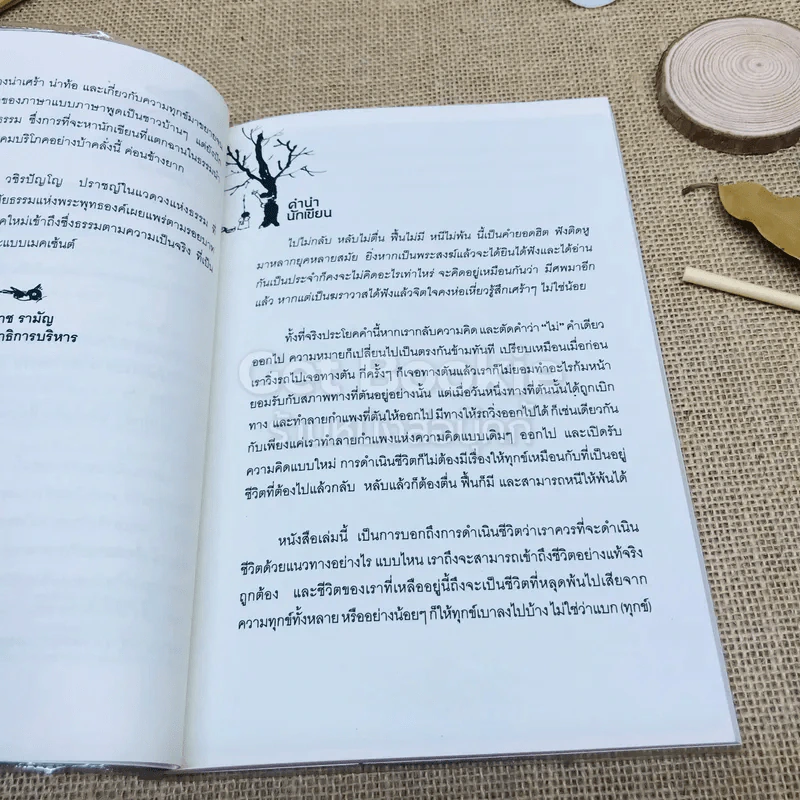 น่าเศร้า น่าท้อ และเกี่ยวกับความทุกข์มาขยายความ
ของภาษาแบบภาษาพูดเป็นชาวบ้านๆ แต่ยัง
ธรรม ซึ่งการที่จะหานักเขียนที่แตกฉานในธรรม
คมบริโภคอย่างบ้าคลั่งนี้ ค่อนข้างยาก
วชิรปัญโญ ปราชญ์ในแวดวงแห่งธรรม ที่
ยธรรมแห่งพระพุทธองค์เผยแพร่ตามรอยบาท
คใหม่เข้าถึงซึ่งธรรมตามความเป็นจริง ที่เป็น
ะแบบเมคเซ้นต์
าช รามัญ
าธิการบริหาร
คำนำ
นักเขียน
ไปไม่กลับ หลับไม่ตื่น ฟื้นไม่มี หนีไม่พ้น นี้เป็นคำยอดฮิต ฟังติดหู
มาหลากยุคหลายสมัย ยิ่งหากเป็นพระสงฆ์แล้วจะได้ยินได้ฟังและได้อ่าน
กันเป็นประจำก็คงจะไม่คิดอะไรเท่าไหร่ จะคิดอยู่เหมือนกันว่า มีศพมาอีก
แล้ว หากแต่เป็นฆราวาสได้ฟังแล้วจิตใจคงห่อเหี่ยวรู้สึกเศร้าๆ ไม่ใช่น้อย
ทั้งที่จริงประโยคคำนี้หากเรากลับความคิด และตัดคำว่า "ไม่" คำเดียว
ออกไป ความหมายก็เปลี่ยนไปเป็นตรงกันข้ามทันที เปรียบเหมือนเมื่อก่อน
เราวิ่งรถไปเจอทางตัน กี่ครั้งๆ ก็เจอทางตันแล้วเราก็ไม่ยอมทำอะไรก้มหน้า
ยอมรับกับสภาพทางที่ตันอยู่อย่างนั้น แต่เมื่อวันหนึ่งทางที่ตันนั้นได้ถูกเบิก
ทาง และทำลายกำแพงที่ตันให้ออกไป มีทางให้รถวิ่งออกไปได้ ก็เช่นเดียวกัน
กับเพียงแค่เราทำลายกำแพงแห่งความคิดแบบเดิมๆ ออกไป และเปิดรับ
ความคิดแบบใหม่ การดำเนินชีวิตก็ไม่ต้องมีเรื่องให้ทุกข์เหมือนกับที่เป็นอยู่
ชีวิตที่ต้องไปแล้วกลับ หลับแล้วก็ต้องตื่น ฟื้นก็มี และสามารถหนีให้พ้นได้
หนังสือเล่มนี้ เป็นการบอกถึงการดำเนินชีวิตว่าเราควรที่จะดำเนิน
ชีวิตด้วยแนวทางอย่างไร แบบไหน เราถึงจะสามารถเข้าถึงชีวิตอย่างแท้จริง
ถูกต้อง และชีวิตของเราที่เหลืออยู่นี้ถึงจะเป็นชีวิตที่หลุดพ้นไปเสียจาก
ความทุกข์ทั้งหลาย หรืออย่างน้อยๆ ก็ให้ทุกข์เบาลงไปบ้าง ไม่ใช่ว่าแบก (ทุกข์)